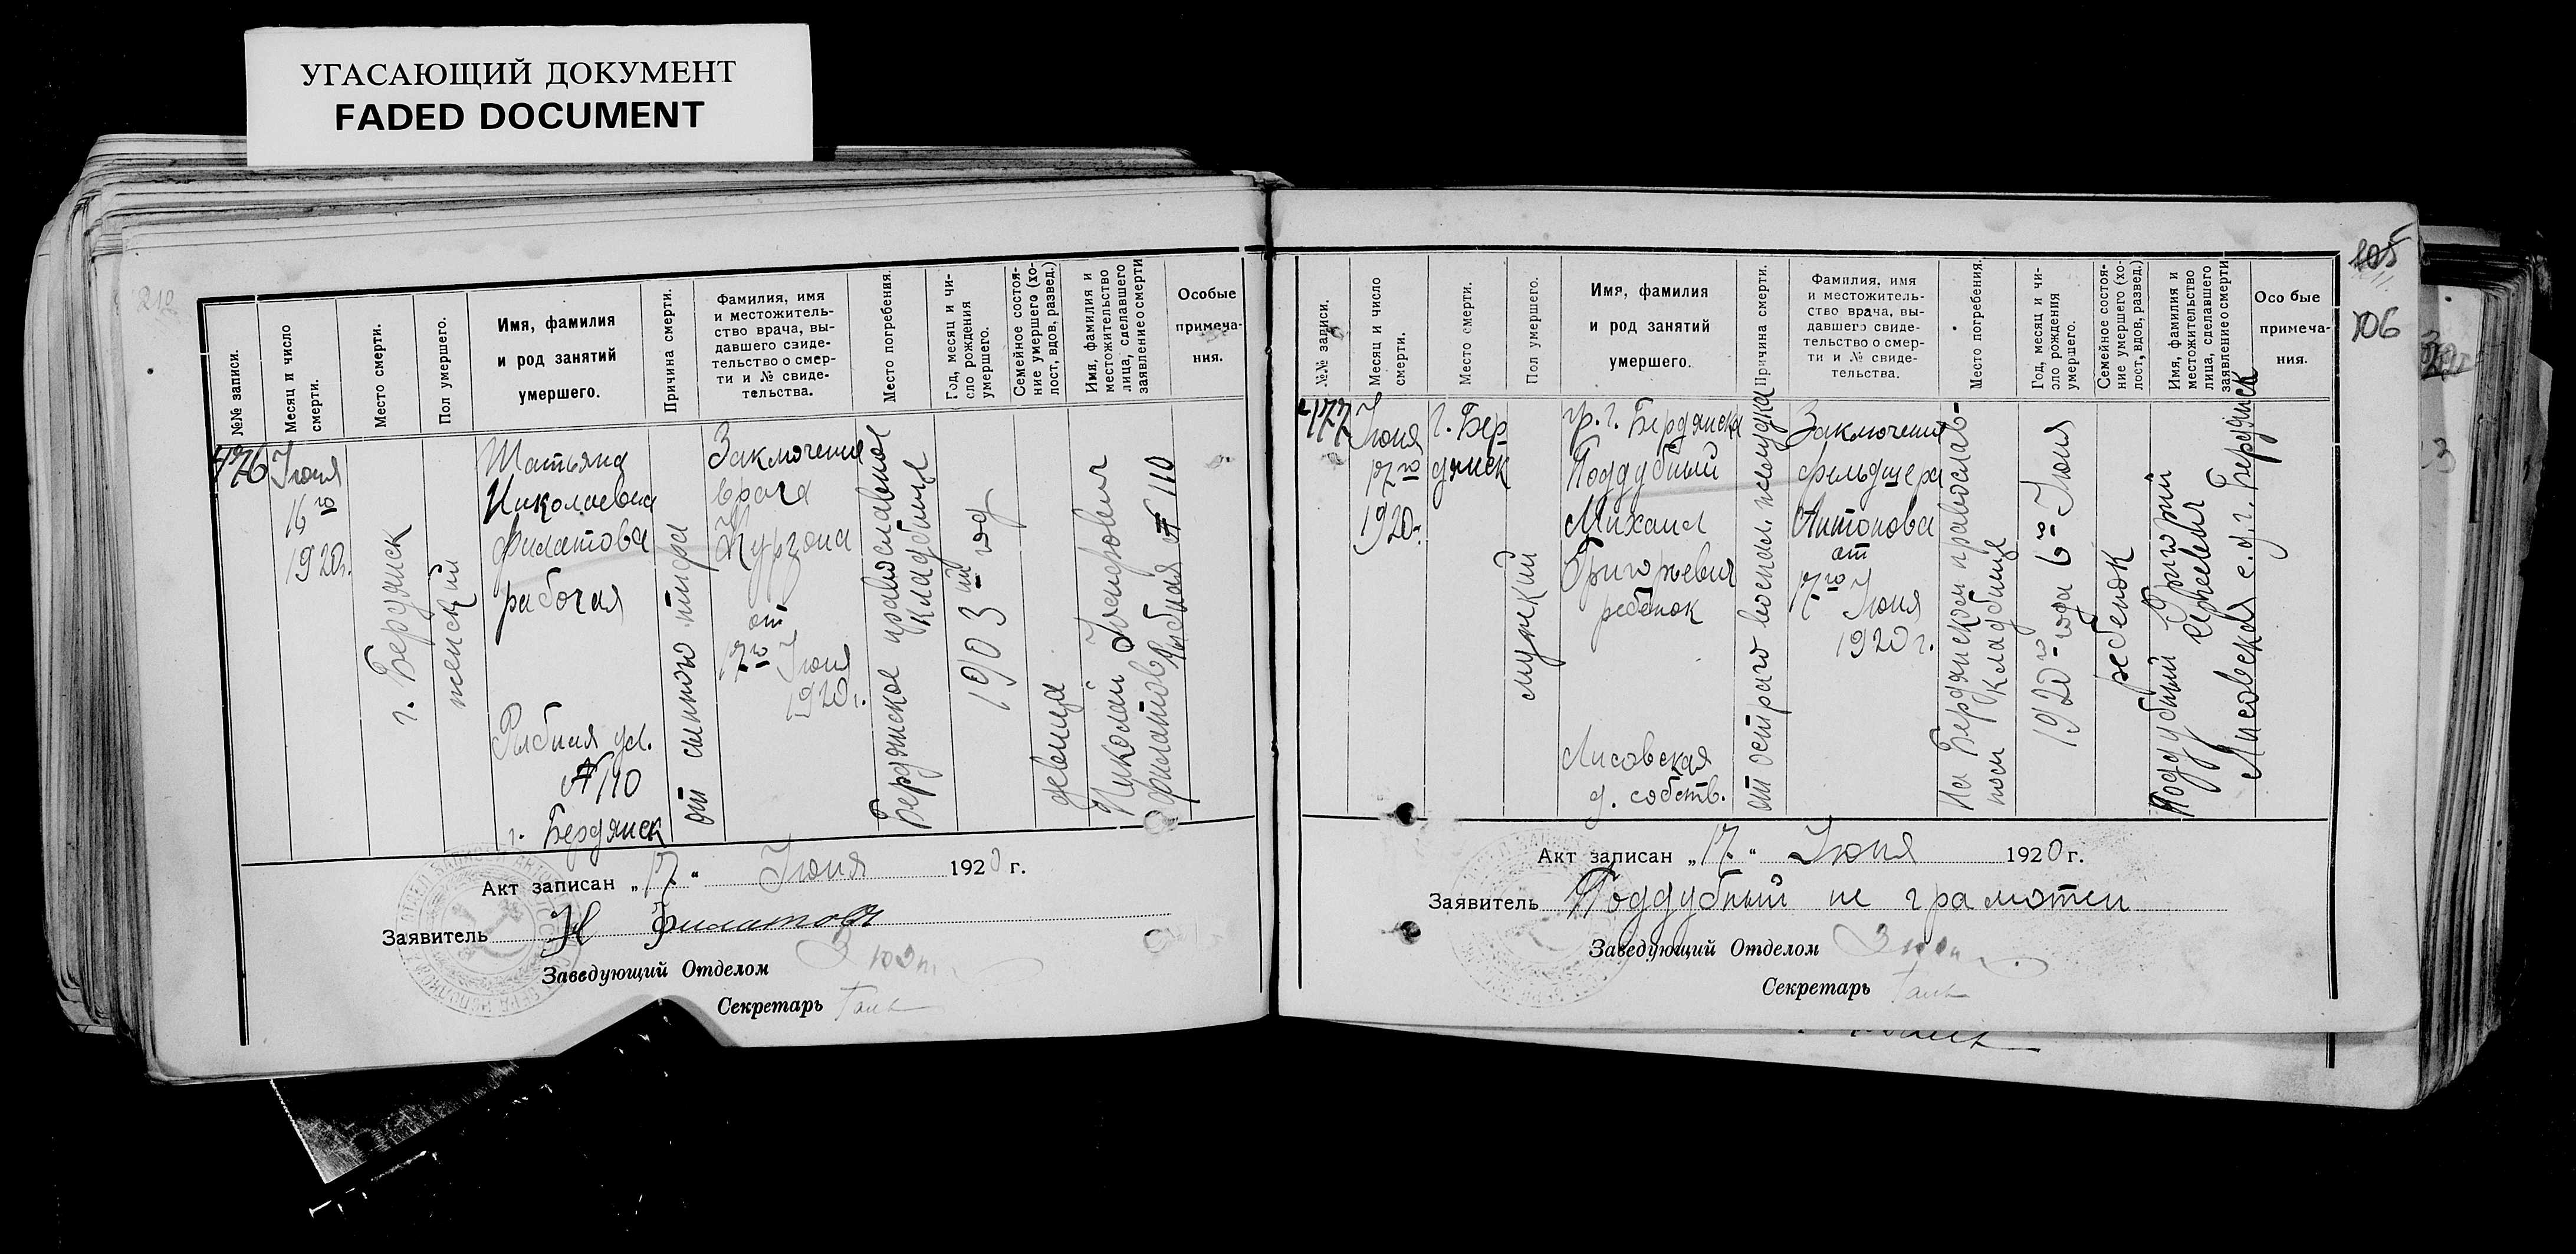 УГАСАЮЩИЙ ДОКУМЕНТ
FADED DOCUMENT
№№ записи.
Месяц и число
смерти.
Место смерти.
Пол умершего.
Имя, фамилия
и род занятий
умершего.
Причина смерти.
Фамилия, имя
и местожитель-
ство врача, вы-
давшего свиде-
тельство о смер-
ти и № свиде-
тельства.
Место погребения.
Год, месяц и чи-
сло рождения
умершего.
Семейное состоя-
ние умершего (хо-
лост, вдов, развед.)
Имя, фамилия и
местожительство
лица, сделавшего
заявление о смерти
Особые
примеча-
ния.
176
Июня
16го
1920г.
г. Бердянск
женский
Татьяна
Николаевна
Филатова
рабочая
Рыбная ул.
№ 110
г. Бердянск
от сыпного тифа
Заключение
врача
от
17го Июня
1920г.
Бердянское православное
кладбище
1903ий год
девица
Николай
Филатов Рыбная № 110
Акт записан „17“ Июня 1920 г.
Заявитель Н Филатовъ
Заведующий Отделом
Секретарь
105
106
№№ записи.
Месяц и число
смерти.
Место смерти.
Пол умершего.
Имя, фамилия
и род занятий
умершего.
Причина смерти.
Фамилия, имя
и местожитель-
ство врача, вы-
давшего свиде-
тельство о смер-
ти и № свиде-
тельства.
Место погребения.
Год, месяц и чи-
сло рождения
умершего.
Семейное состоя-
ние умершего (хо-
лост, вдов, развед.)
Имя, фамилия и
местожительство
лица, сделавшего
заявление о смерти
Особые
примеча-
ния.
177
Июня
17го
1920г.
г. Бер
дянск
мужский
гр. г. Бердянска
Поддубный
Михаил
Григорьевич
ребенок
Лисовская
д. собств.
от острого воспал. желудка
Заключение
фельдшера
Антонова
от
17го Июня
1920г.
На Бердянском православ-
ном кладбище
1920го года 6го Июня
ребенок
Поддубный Григорий
Сергеевич
Лисовская с. д. г. Бердянск
Акт записан „17.“ Июня 1920 г.
Заявитель Поддубный не грамотен
Заведующий Отделом
Секретарь